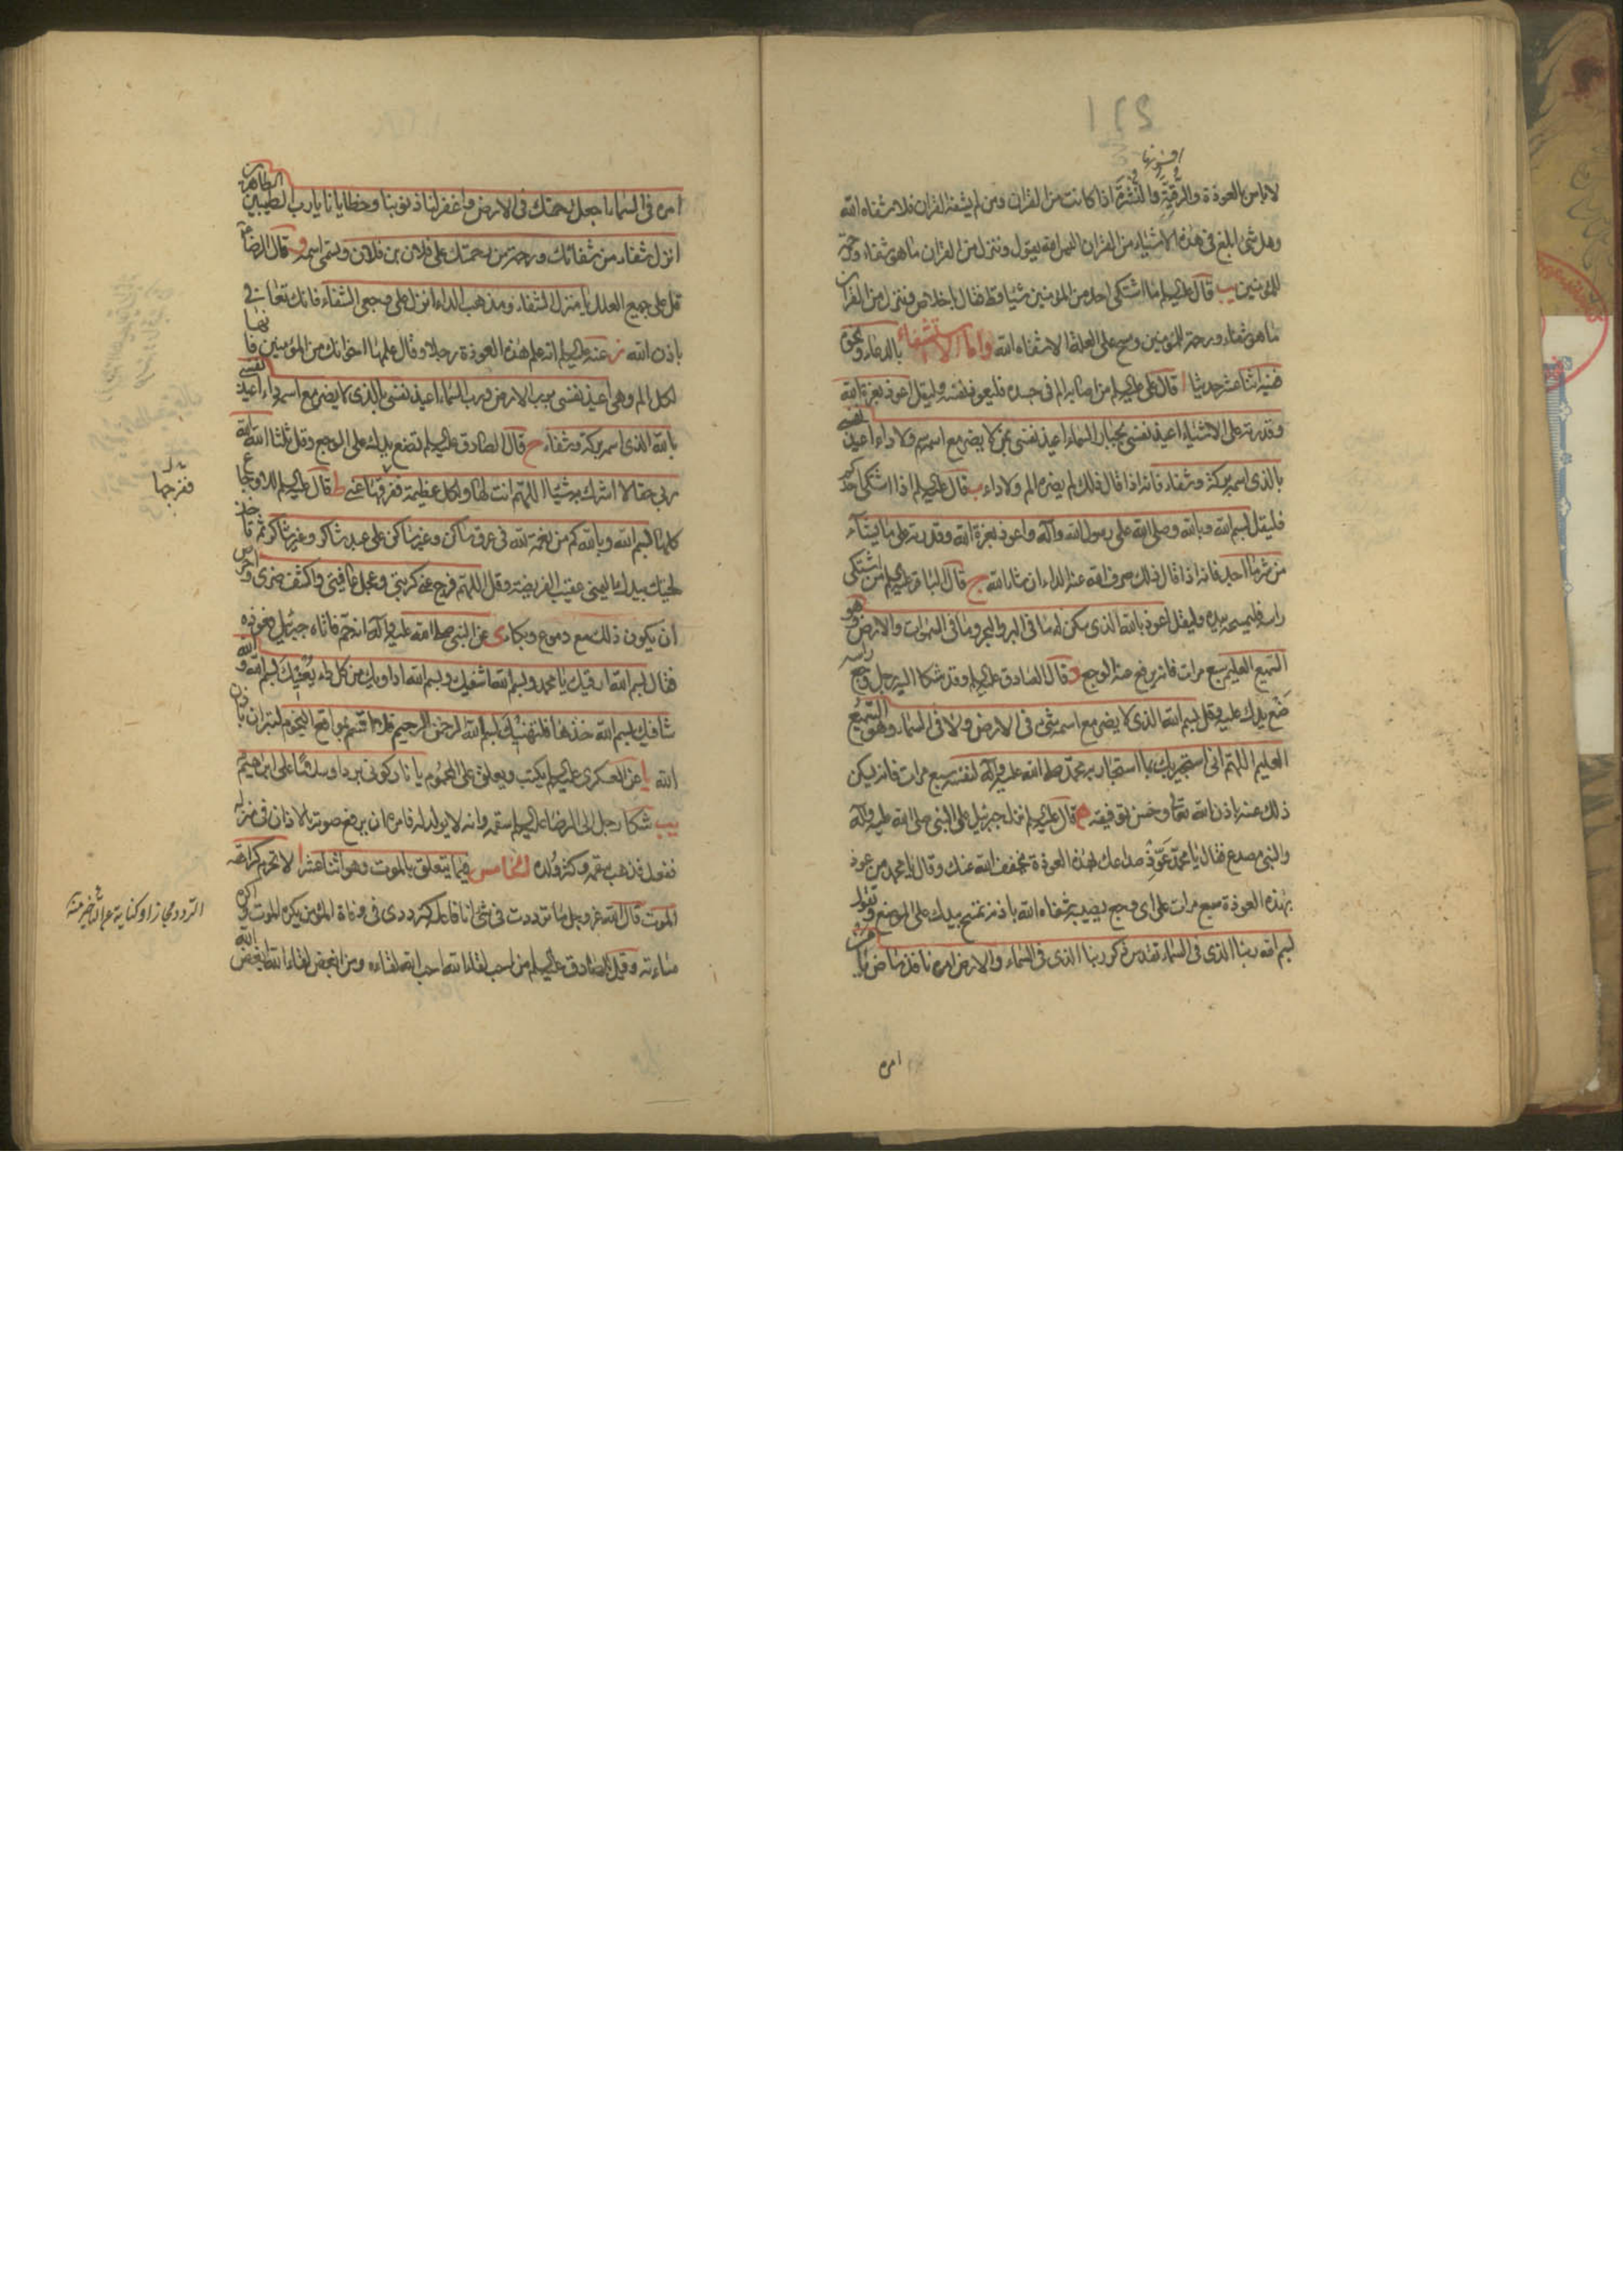 ١٢٤
افسونها
لا باس بالعوذة والرقية والنشرة اذا كانت من القران ومن لم يشفه القران فلا شفاه الله
وهل شئ ابلغ فى هذه الاشياء من القران اليس الله يقول وننزل من القران ما هو شفاء ورحمة
للمؤمنين يب قال عليه السلم ما اشتكى احد من المؤمنين شيئا قط فقال باخلاص وننزل من القران
ما هو شفاء ورحمة للمؤمنين ومسح على العلة الا شفاه الله واما الاستشفاء بالدعاء ونحوه
ففيه اثنا عشر حديثا ا قال على عليه السلم من اصابه الم فى جسده فليعوذ نفسه وليقل اعوذ بعزة الله
وقدرته على الاشياء اعيذ نفسى بجبار السماء اعيذ نفسى بمن لا يضر مع اسمه سم ولا داء اعيذ نفسى
بالذى اسمه بركة وشفاء فانه اذا قال ذلك لم يضره الم ولا داء ب قال عليه السلم اذا اشتكى احدكم
فليقل بسم الله وبالله وصلى الله على رسول الله وآله واعوذ بعزة الله وقدرته على ما يشاء
من شر ما اجد فانه اذا قال ذلك صرف الله عنه الداء ان شاء الله ج قال الباقر عليه السلم من اشتكى
راسه فليمسحه بيده وليقل اعوذ بالله الذى سكن له ما فى البر والبحر وما فى السموات والارض وهو
السميع العليم سبع مرات فانه يرفع عنه الوجع د وقال الصادق عليه السلم وقد شكا اليه رجل وجع راسه
ضع يدك عليه وقل بسم الله الذى لا يضر مع اسمه شئ فى الارض ولا فى السماء وهو السميع
العليم اللهم انى استجير بك بما استجار به محمد صلى الله عليه وآله لنفسه سبع مرات فانه يسكن
ذلك عنه باذن الله تعالى وحسن توفيقه ه قال عليه السلم نزل جبرئيل على النبى صلى الله عليه وآله
والنبى مصدع فقال يا محمد عوذ صداعك بهذه العوذة يخفف الله عنك وقال يا محمد من عوذ
بهذه العوذة سبع مرات على اى وجع يصيبه شفاه الله باذنه تمسح بيدك على الموضع وتقول
بسم الله ربنا الذى فى السماء تقدس ذكر ربنا الذى فى السماء والارض امره نافذ ماض كما ان
امره
امره فى السماء اجعل رحمتك فى الارض واغفر لنا ذنوبنا وخطايانا يا رب الطيبين الطاهرين
انزل شفاء من شفائك ورحمة من رحمتك على فلان بن فلان وتسمى اسمه و قال الرضا
قل على جميع العلل يا منزل الشفاء ومذهب الداء انزل على وجعى الشفاء فانك تعافى
باذن الله ز عنه عليه السلم انه علم هذه العوذة رجلا وقال علمها اخوانك من المؤمنين فانها
لكل الم وهى اعيذ نفسى برب الارض ورب السماء اعيذ نفسى بالذى لا يضر مع اسمه داء اعيذ نفسى
بالله الذى اسمه بركة وشفاء ح قال الصادق عليه السلم تضع يدك على الوجع وقل ثلثا الله الله
ربى حقا لا اشرك به شيئا اللهم انت لها ولكل عظيمة ففرقها عنى ط قال عليه السلم للاوجاع
ففرجها
كلها بسم الله وبالله كم من نعمة لله فى عرق ساكن وغير ساكن على عبد شاكر وغير شاكر ثم تاخذ
لحيتك بيدك اليمنى عقيب الفريضة وقل اللهم فرج عنى كربتى وعجل عافيتى واكشف ضرى واحرص
ان يكون ذلك مع دموع وبكاء ى عن النبى صلى الله عليه وآله انه حم فاتاه جبرئيل فعوذه
فقال بسم الله ارقيك يا محمد وبسم الله اشفيك وبسم الله اداويك من كل داء يعنيك بسم الله والله
شافيك بسم الله خذها فلتهنيك بسم الله الرحمن الرحيم فلا اقسم بمواقع النجوم لتبران باذن
الله يا عن العسكرى عليه السلم يكتب ويعلق على المحموم يا نار كونى بردا وسلاما على ابرهيم
يب شكا رجل الى الرضا عليه السلم سقمه وانه لا يولد له فامره ان يرفع صوته بالاذان فى منزله
ففعل فذهب سقمه وكثر ولده الخامس فيما يتعلق بالموت وهو اثنا عشر ا لا تحرم كراهة
الموت قال الله عز وجل ما ترددت فى شئ انا فاعله كترددى فى وفاة المؤمن يكره الموت واكره
التردد مجاز او كناية عن التاخير منه
مساءته وقيل للصادق عليه السلم من احب لقاء الله احب الله لقاءه ومن ابغض لقاء الله ابغض الله